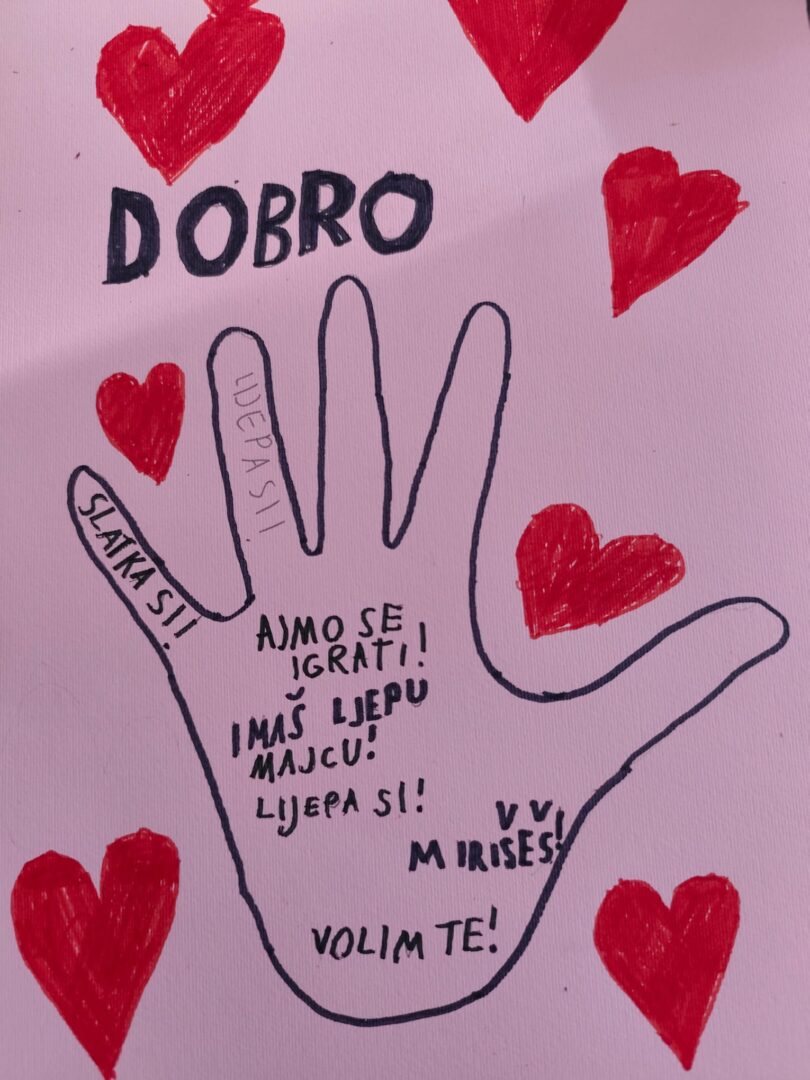 DOBRO
LIJEPA SI!
SLATKA SI!
AJMO SE
IGRATI!
IMAŠ LJEPU
MAJCU!
LIJEPA SI!
MIRIŠEŠ!
VOLIM TE!